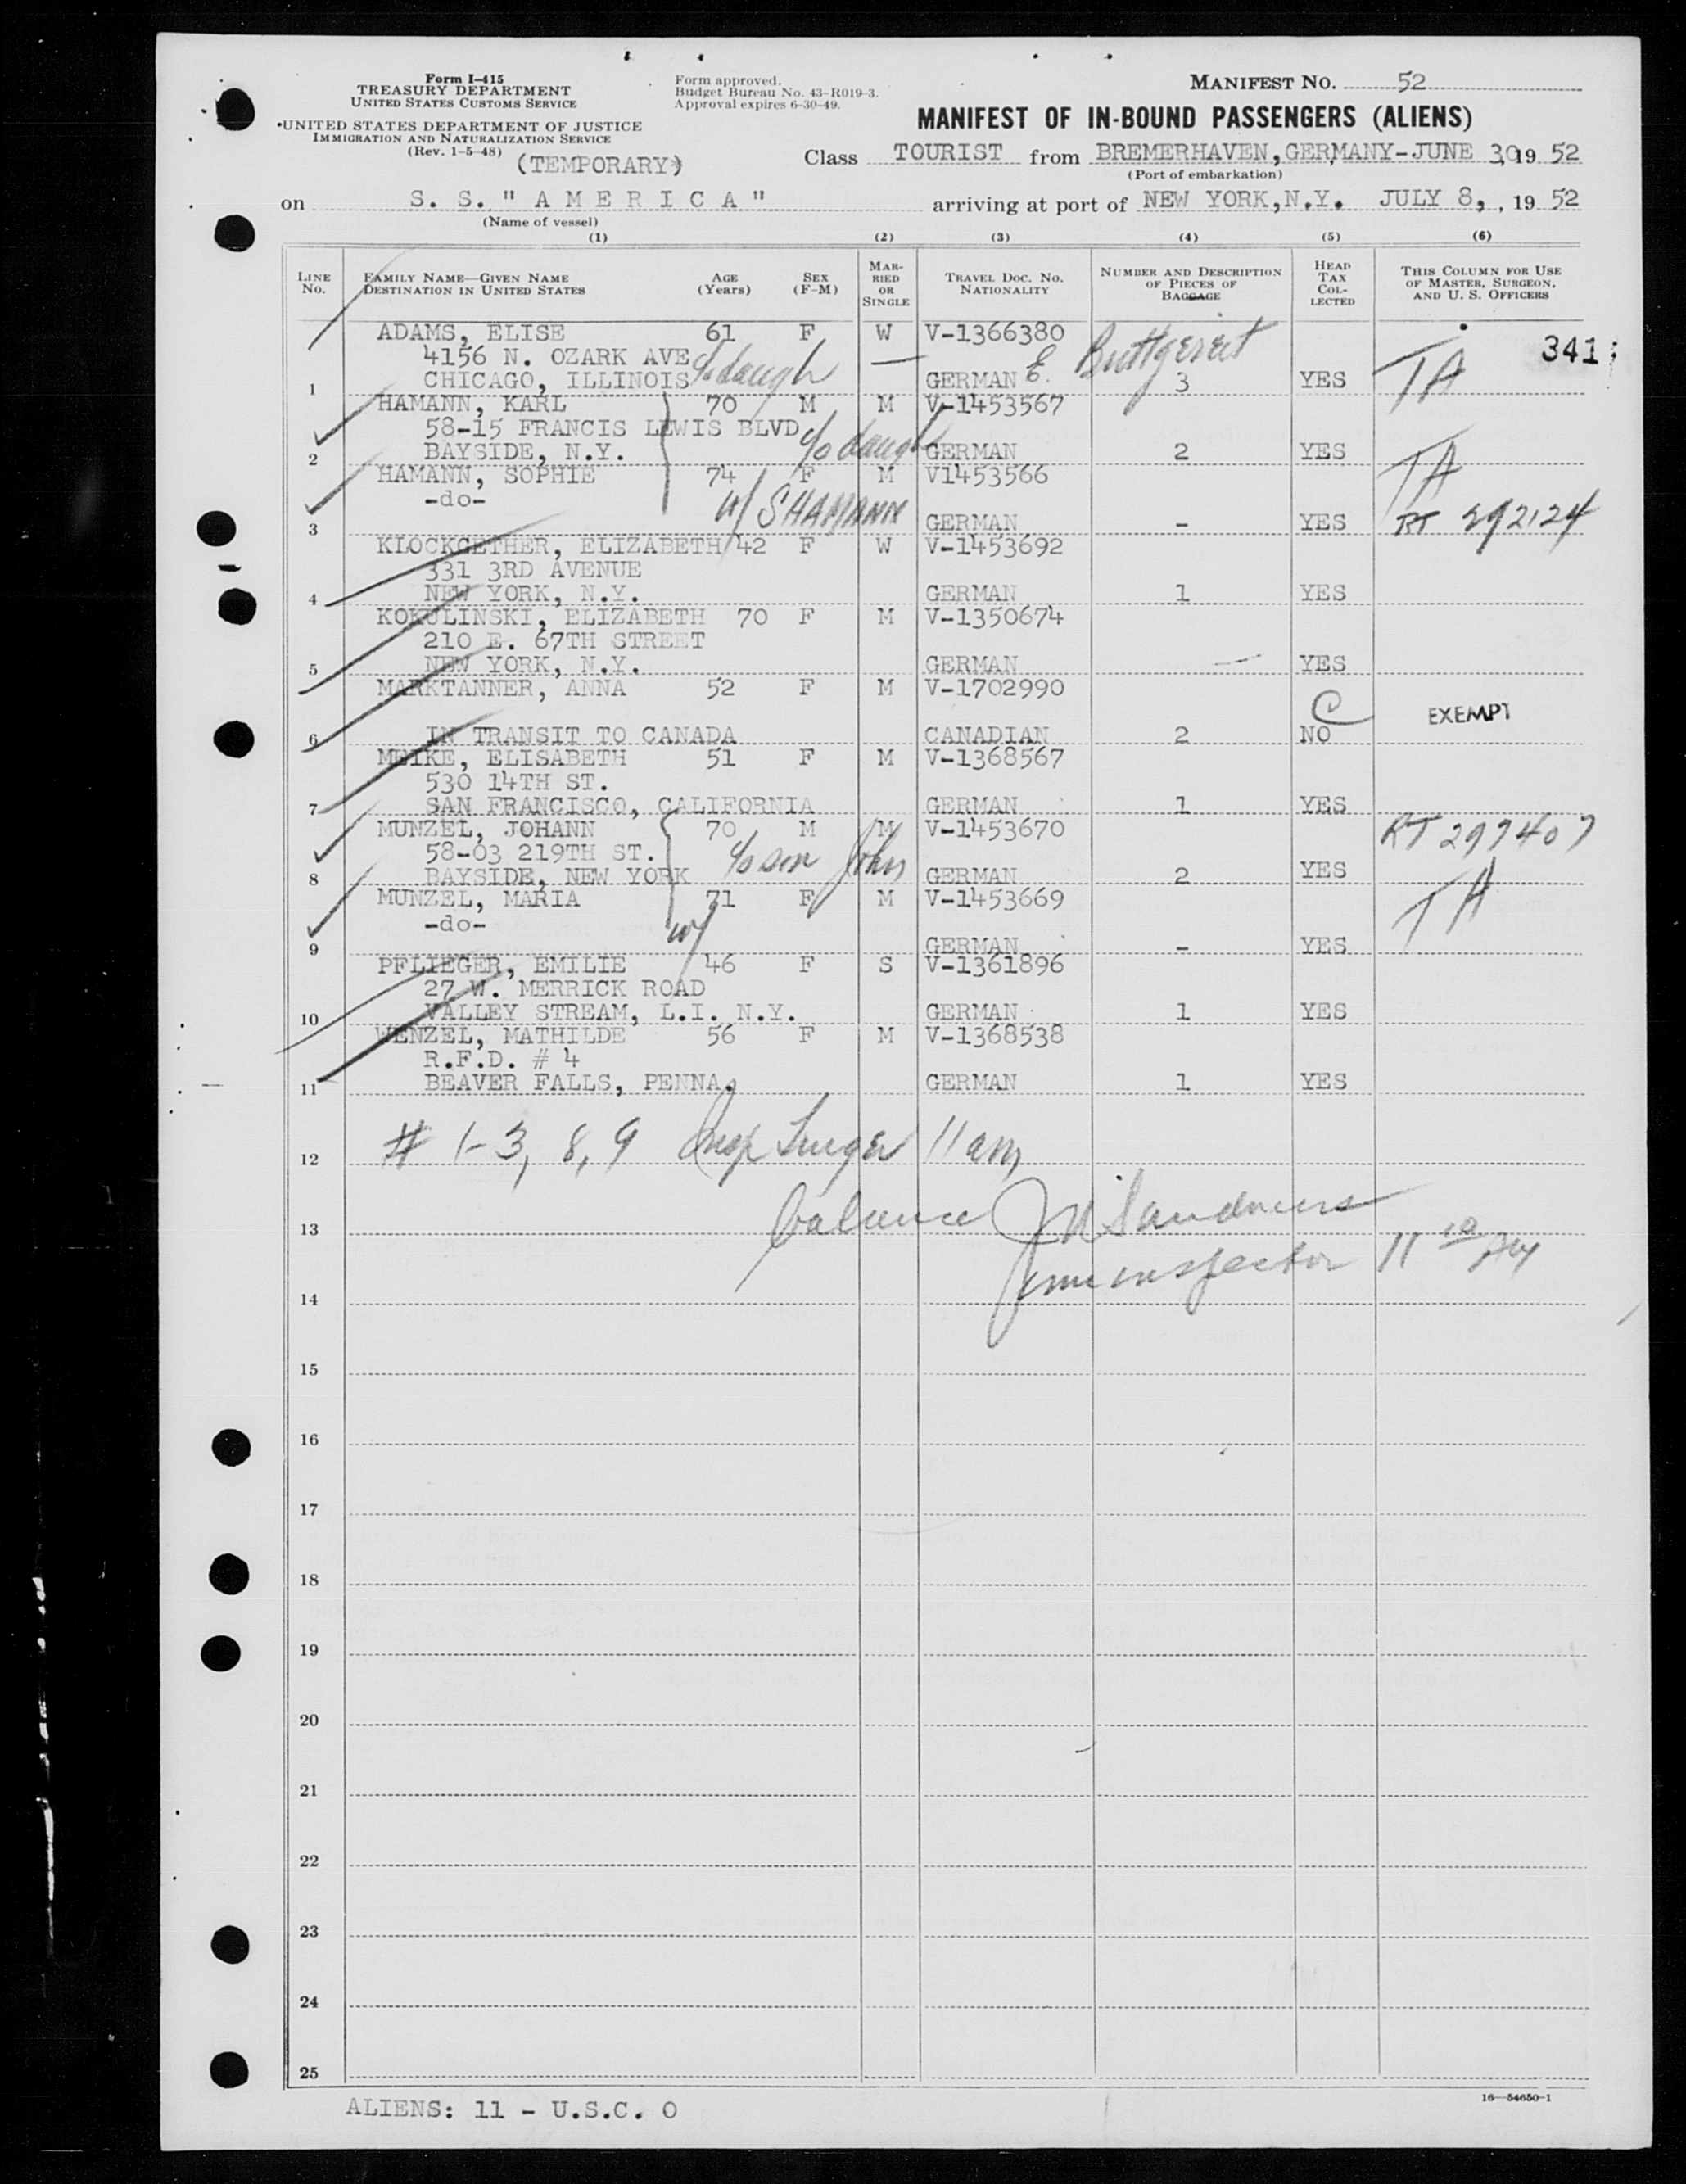 Form I-415
TREASURY DEPARTMENT
UNITED STATES CUSTOMS SERVICE
UNITED STATES DEPARTMENT OF JUSTICE
IMMIGRATION AND NATURALIZATION SERVICE
(Rev. 1-5-48)
(TEMPORARY)
Form approved.
Budget Bureau No. 43-R019-3.
Approval expires 6-30-49.
MANIFEST NO. 52
MANIFEST OF IN-BOUND PASSENGERS (ALIENS)
Class TOURIST from BREMERHAVEN, GERMANY-JUNE 30, 19 52
(Port of embarkation)
on S. S. "AMERICA" arriving at port of NEW YORK, N.Y. JULY 8, , 19 52
(Name of vessel)
(1) (2) (3) (4) (5) (6)
LINE NO. FAMILY NAME—GIVEN NAME DESTINATION IN UNITED STATES AGE (Years) SEX (F-M) MARRIED OR SINGLE TRAVEL DOC. NO. NATIONALITY NUMBER AND DESCRIPTION OF PIECES OF BAGGAGE HEAD TAX COLLECTED THIS COLUMN FOR USE OF MASTER, SURGEON, AND U. S. OFFICERS
ADAMS, ELISE 61 F W V-1366380 E. Buttgereit 341
4156 N. OZARK AVE c/o daugh
1 CHICAGO, ILLINOIS GERMAN 3 YES TA
HAMANN, KARL 70 M M V-1453567
58-15 FRANCIS LEWIS BLVD c/o daugh
2 BAYSIDE, N.Y. GERMAN 2 YES TA
HAMANN, SOPHIE 74 F M V1453566
-do- w/ S HAMANN
3 GERMAN - YES RT 292124
KLOCKGETHER, ELIZABETH 42 F W V-1453692
331 3RD AVENUE
4 NEW YORK, N.Y. GERMAN 1 YES
KOKULINSKI, ELIZABETH 70 F M V-1350674
210 E. 67TH STREET
5 NEW YORK, N.Y. GERMAN — YES
MARKTANNER, ANNA 52 F M V-1702990
C EXEMPT
6 IN TRANSIT TO CANADA CANADIAN 2 NO
MEIKE, ELISABETH 51 F M V-1368567
530 14TH ST.
7 SAN FRANCISCO, CALIFORNIA GERMAN 1 YES
MUNZEL, JOHANN 70 M M V-1453670 RT 297407
58-03 219TH ST. c/o son John
8 BAYSIDE, NEW YORK GERMAN 2 YES
MUNZEL, MARIA 71 F M V-1453669 TA
-do- w/
9 GERMAN - YES
PFLIEGER, EMILIE 46 F S V-1361896
27 W. MERRICK ROAD
10 VALLEY STREAM, L.I. N.Y. GERMAN 1 YES
WENZEL, MATHILDE 56 F M V-1368538
R.F.D. # 4
11 BEAVER FALLS, PENNA. GERMAN 1 YES
12 # 1-3, 8, 9 Insp 11 am
13 balance
14 Imm inspector 11 10 AM
15
16
17
18
19
20
21
22
23
24
25
ALIENS: 11 - U.S.C. 0
16—54650-1